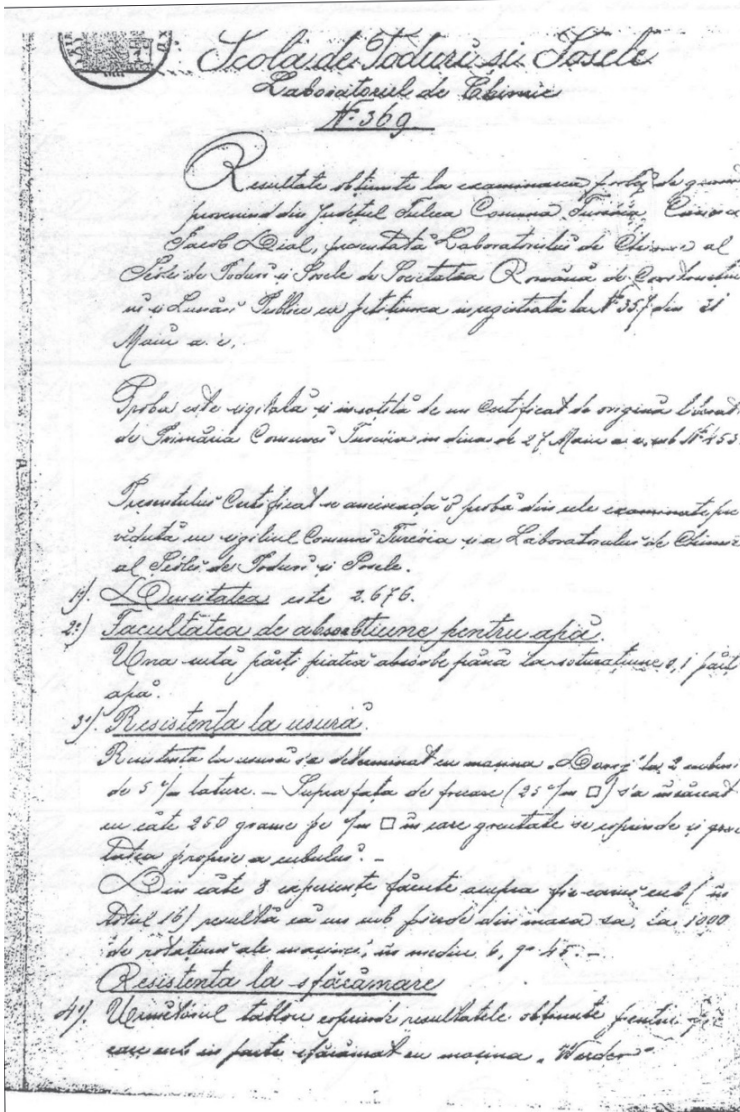 Scola de Poduri si Sosele
Laboratoriul de Chimie
Nº 369
Resultate obtinute la examinarea probei de granit
provenind din județul Tulcea Comuna Turcóia, Cariera
Iacob Deal, presentată Laboratorului de Chimie al
Scólei de Poduri și Sosele de Societatea Română de Construcțiu
ni și Lucrări Publice cu petițiunea inregistrată la Nº 357 din 31
Maiu a. c.
Proba este sigilată și insoțită de un Certificat de origină liberat
de Primăria Comunei Turcóia in diua de 27 Maiu a. c. sub Nº 453
Presentului Certificat se anexeadă o probă din cele examinate pre
vĕdută cu sigiliul Comunei Turcóia și a Laboratorului de Chimie
al Scólei de Poduri și Sosele.
1º). Densitatea este 2.676.
2º.) Facultatea de absorbtiune pentru apă.
Una sută părți piatră absórbe până la saturațiune 0,1 părți
apă.
3º). Resistența la usură.
Resistența la usură s'a determinat cu mașina „ la 2 cuburi
de 5 c/m lature. – Suprafața de frecare (25 c/m □) s'a insărcat
cu câte 250 grame pe c/m □ în care greutate se coprinde și greu
tatea proprie a cubului. –
Din câte 8 experiențe făcute asupra fie-cărui cub (în
totul 16) resultă că un cub pierde din masa sa, la 1000
de rotațiuni ale mașinei, în mediu 6, gr 45. –
Resistenta la sfărâmare
4º). Următorul tablou coprinde resultatele obtinute pentru fie
care cub in parte sfărâmat cu mașina „Werder"